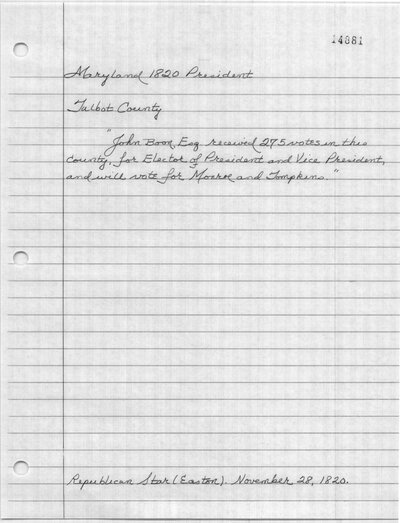 14881
Maryland 1820 President
Talbot County
"John Boon, Esq. received 275 votes in this
county, for Elector of President and Vice President,
and will vote for Monroe and Tompkins."
Republican Star (Easton). November 28, 1820.